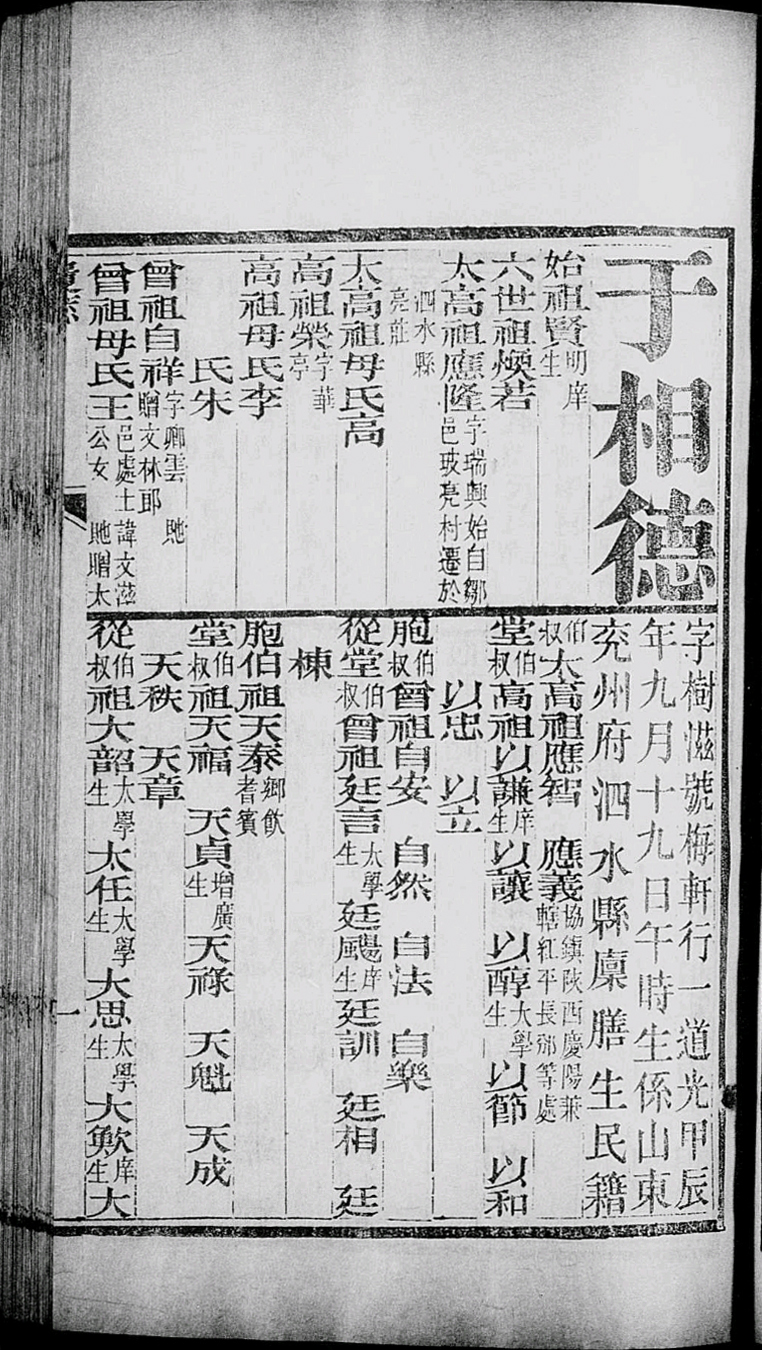 于相德
字樹滋號梅軒行一道光甲辰
年九月十九日午時生係山東
兖州府泗水縣廩膳生民籍
始祖賢明庠生
六世祖煥若
太高祖應隆字瑞興始自鄒邑玻亮村遷於
泗水縣亮莊
太高祖母氏高
高祖榮字華亭
高祖母氏李
氏朱
曾祖自祥字卿雲 貤贈文林郎
曾祖母氏王邑處士諱文滋公女 貤贈太
伯叔太高祖應智 應義協鎮陝西慶陽兼轄紅平長邠等處
堂伯叔高祖以謙庠生 以讓 以醇大學生 以節 以和
以忠 以立
胞伯叔曾祖自安 自然 自法 自樂
從堂伯叔曾祖廷言太學生 廷颺庠生 廷訓 廷相 廷
棟
胞伯祖天泰鄉飲耆賓
堂伯叔祖天福 天貞增廣生 天祿 天魁 天成
天秩 天章
從伯叔祖大韶太學生 大任太學生 大思太學生 大歟庠生 大
一